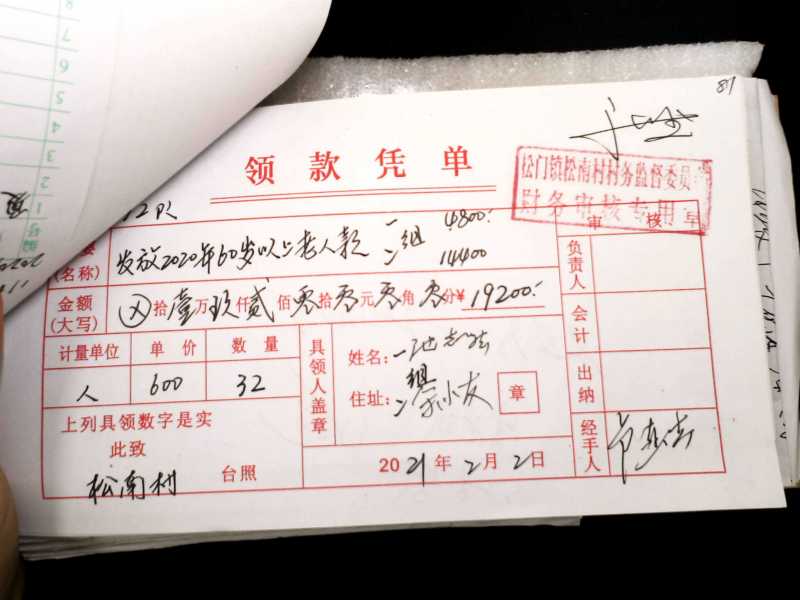 81
领款凭单
松门镇松南村村务监督委员
财务审核专用章
审核
12队
(名称) 发放2020年60岁以上老人款 一组 4800:
二 14400
金额(大写) ⊗拾壹万玖仟贰佰零拾零元零角零分¥19200:
计量单位 单价 数量
人 600 32
上列具领数字是实
此致
松南村 台照
具领人盖章
姓名:一
住址:二组 小友 章
2021年2月2日
负责人
会计
出纳
经手人